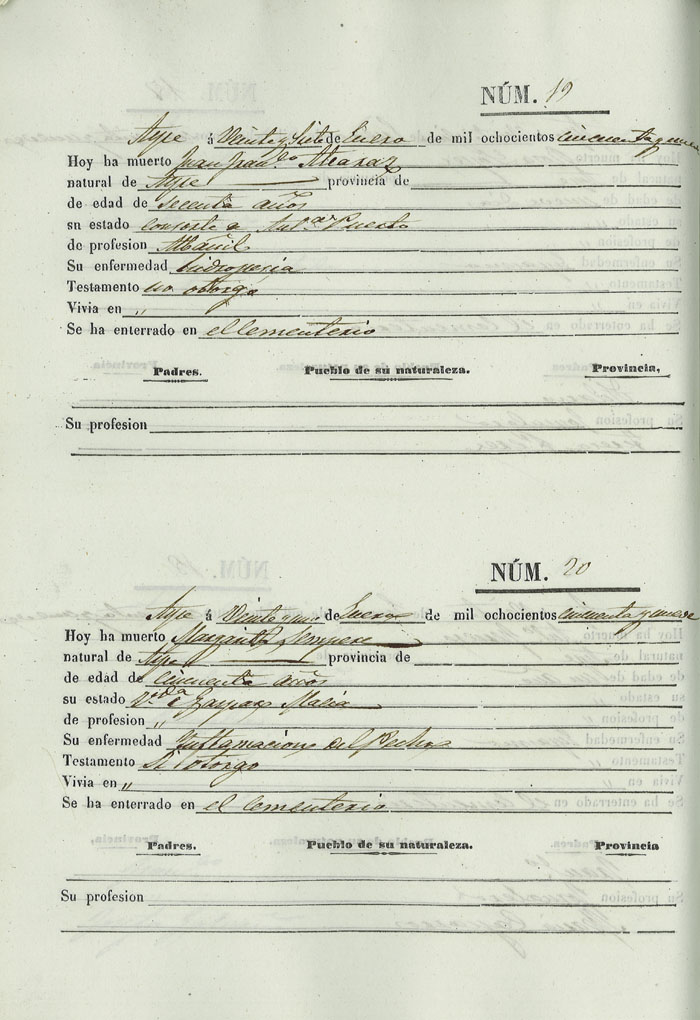 NÚM. 19
Aspe á Veinte y Siete de Enero de mil ochocientos cincuenta y nueve
Hoy ha muerto Juan Fran.co Alcaraz
natural de Aspe provincia de
de edad de sesenta años
su estado consorte de Ant.a Puerto
de profesion Albañil
Su enfermedad hidropesia
Testamento no otorgó
Vivia en "
Se ha enterrado en el Cementerio
Padres. Pueblo de su naturaleza. Provincia,
Su profesion
NÚM. 20
Aspe á de Enero de mil ochocientos cincuenta y nueve
Hoy ha muerto Margarita Sempere
natural de Aspe provincia de
de edad de cincuenta años
su estado V.da de Gaspar Maciá
de profesion "
Su enfermedad Inflamacion del Pecho
Testamento Si otorgo
Vivia en "
Se ha enterrado en el Cementerio
Padres. Pueblo de su naturaleza. Provincia
Su profesion